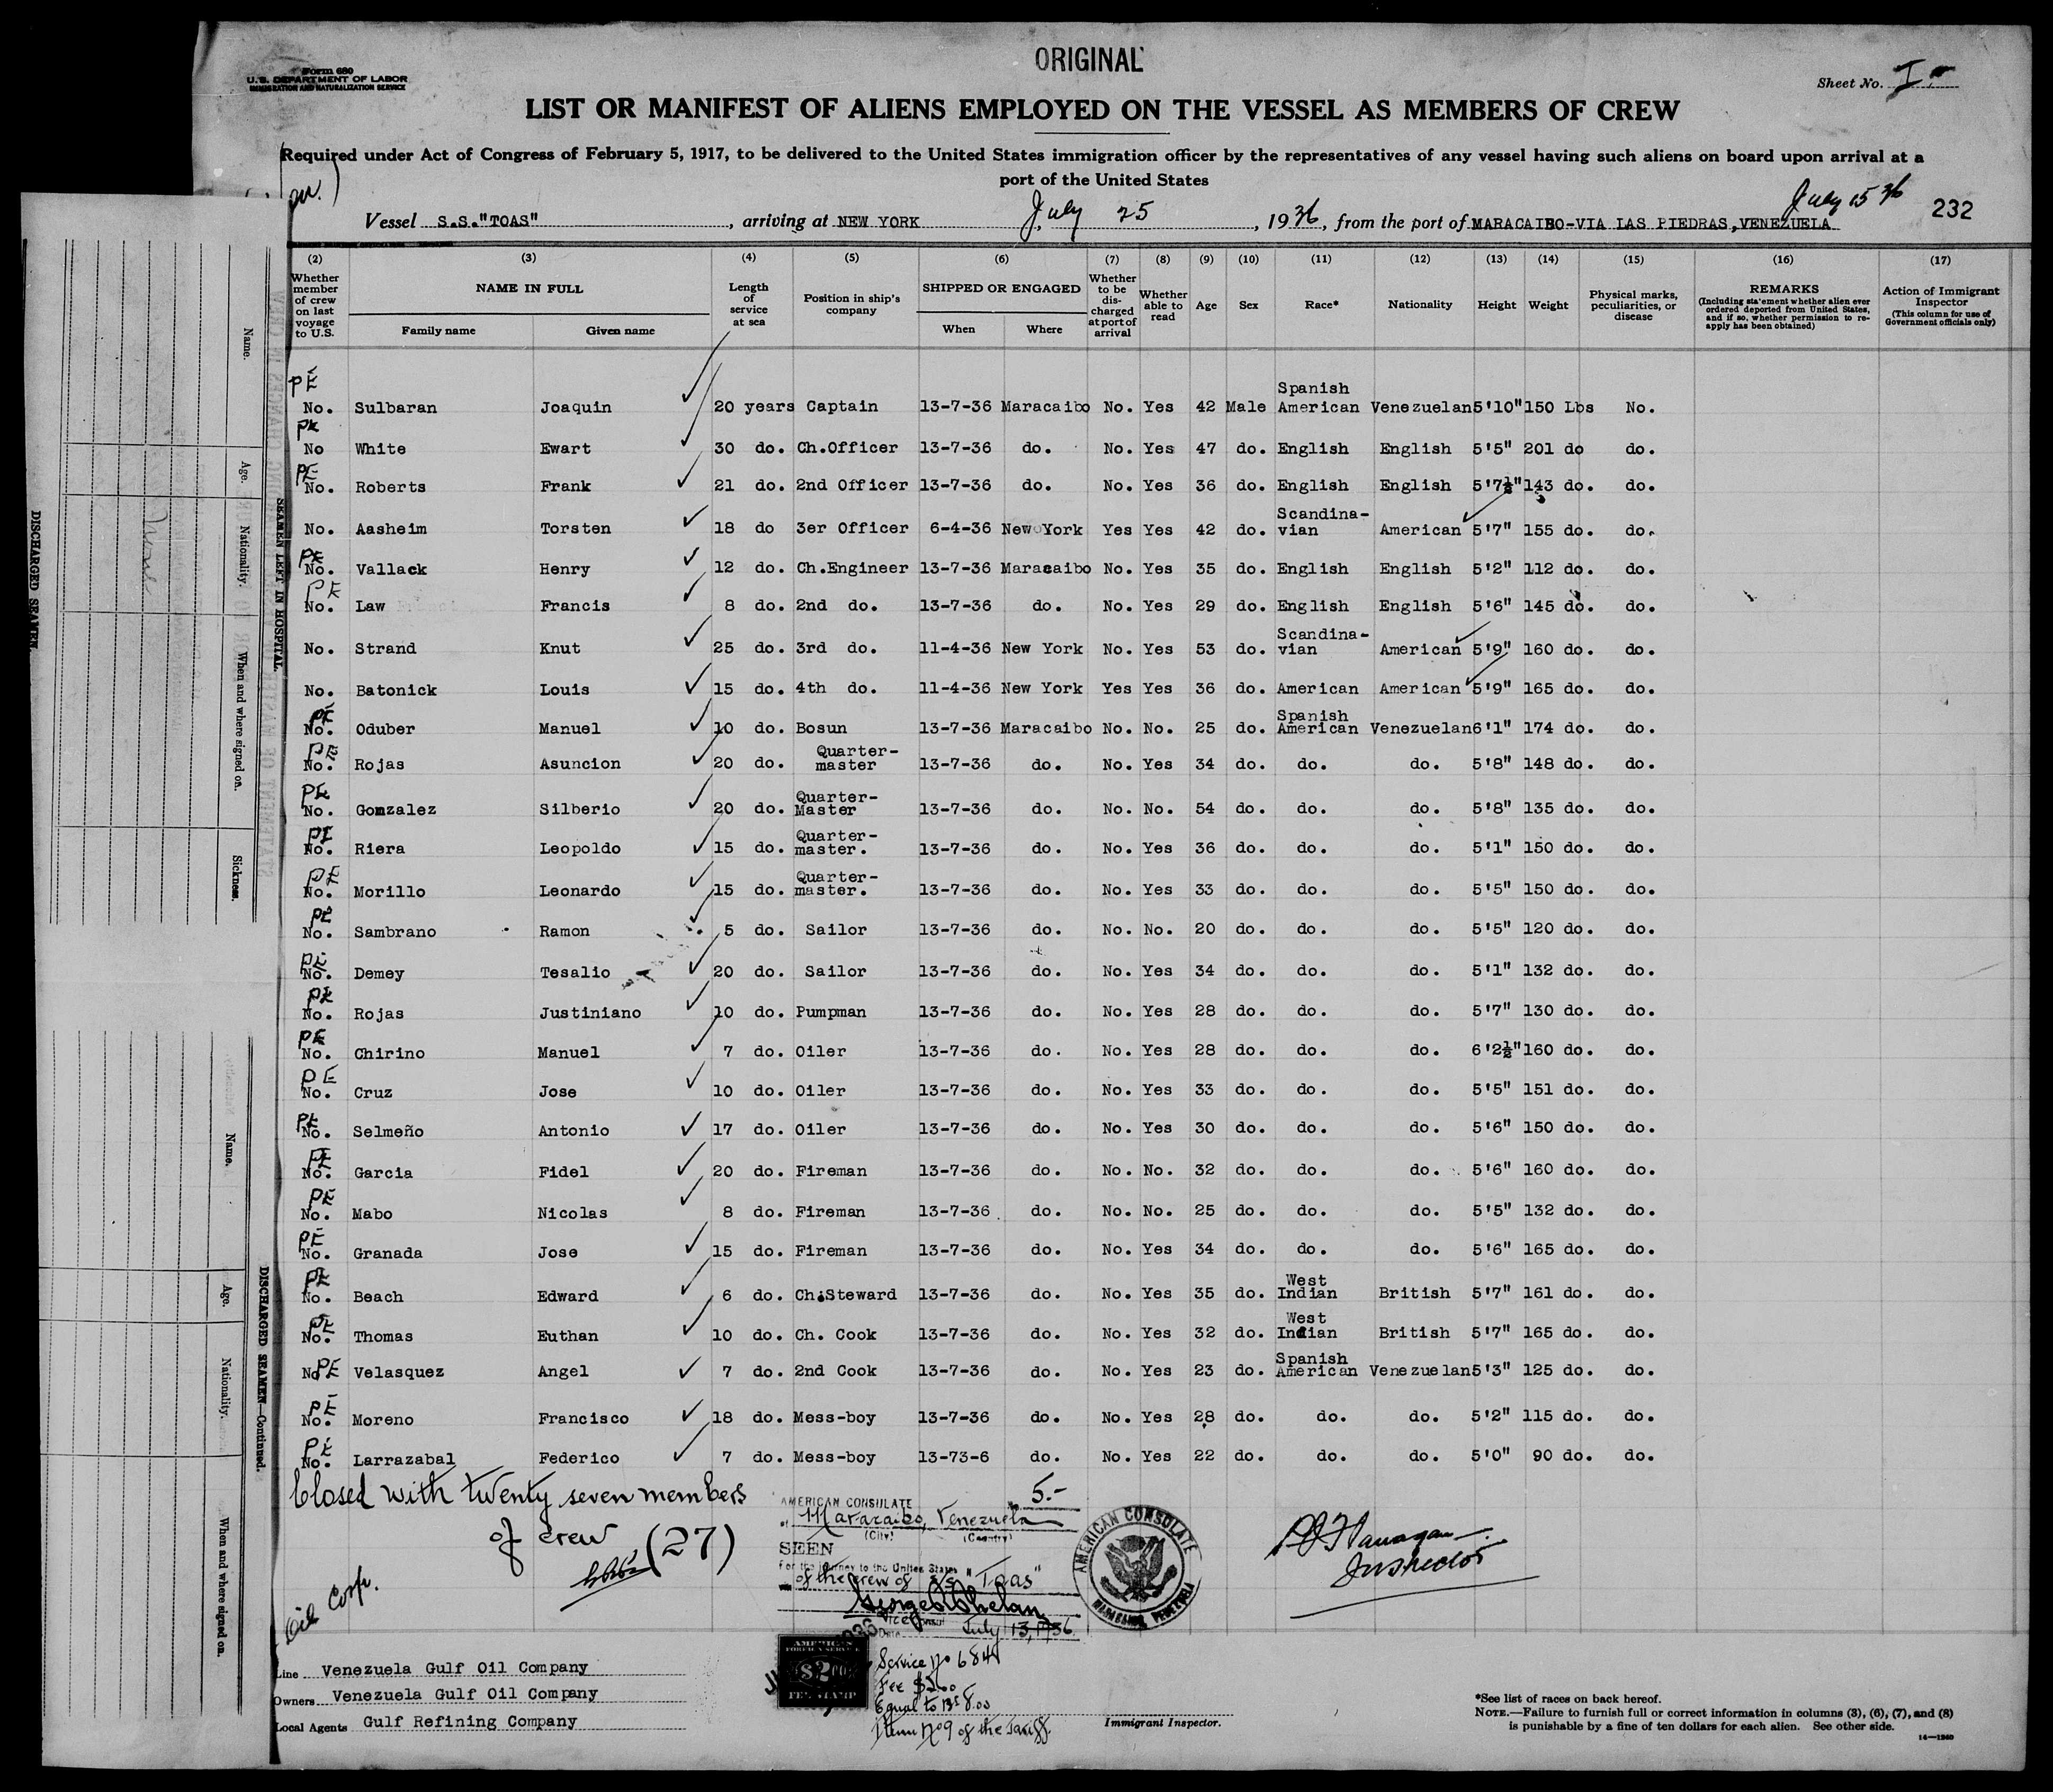 ORIGINAL
Form 680
U.S. DEPARTMENT OF LABOR
IMMIGRATION AND NATURALIZATION SERVICE
Sheet No. I
LIST OR MANIFEST OF ALIENS EMPLOYED ON THE VESSEL AS MEMBERS OF CREW
Required under Act of Congress of February 5, 1917, to be delivered to the United States immigration officer by the representatives of any vessel having such aliens on board upon arrival at a
port of the United States
July 15 36
232
Vessel S.S."TOAS", arriving at NEW YORK July 25, 1936, from the port of MARACAIBO-VIA LAS PIEDRAS,VENEZUELA
(2) (3) (4) (5) (6) (7) (8) (9) (10) (11) (12) (13) (14) (15) (16) (17)
Whether member of crew on last voyage to U.S.
NAME IN FULL
Family name Given name
Length of service at sea
Position in ship's company
SHIPPED OR ENGAGED
When Where
Whether to be discharged at port of arrival
Whether able to read
Age
Sex
Race*
Nationality
Height
Weight
Physical marks, peculiarities, or disease
REMARKS
(Including statement whether alien ever ordered deported from United States, and if so, whether permission to reapply has been obtained)
Action of Immigrant Inspector
(This column for use of Government officials only)
PE No. Sulbaran Joaquin 20 years Captain 13-7-36 Maracaibo No. Yes 42 Male Spanish American Venezuelan 5'10" 150 Lbs No.
PE No White Ewart 30 do. Ch.Officer 13-7-36 do. No. Yes 47 do. English English 5'5" 201 do do.
PE No. Roberts Frank 21 do. 2nd Officer 13-7-36 do. No. Yes 36 do. English English 5'7½" 143 do. do.
No. Aasheim Torsten 18 do 3er Officer 6-4-36 New York Yes Yes 42 do. Scandina-vian American 5'7" 155 do. do.
PE No. Vallack Henry 12 do. Ch.Engineer 13-7-36 Maracaibo No. Yes 35 do. English English 5'2" 112 do. do.
PE No. Law Francis 8 do. 2nd do. 13-7-36 do. No. Yes 29 do. English English 5'6" 145 do. do.
No. Strand Knut 25 do. 3rd do. 11-4-36 New York No. Yes 53 do. Scandina-vian American 5'9" 160 do. do.
No. Batonick Louis 15 do. 4th do. 11-4-36 New York Yes Yes 36 do. American American 5'9" 165 do. do.
PE No. Oduber Manuel 10 do. Bosun 13-7-36 Maracaibo No. No. 25 do. Spanish American Venezuelan 6'1" 174 do. do.
PE No. Rojas Asuncion 20 do. Quarter-master 13-7-36 do. No. Yes 34 do. do. do. 5'8" 148 do. do.
PE No. Gonzalez Silberio 20 do. Quarter-Master 13-7-36 do. No. No. 54 do. do. do. 5'8" 135 do. do.
PE No. Riera Leopoldo 15 do. Quarter-master. 13-7-36 do. No. Yes 36 do. do. do. 5'1" 150 do. do.
PE No. Morillo Leonardo 15 do. Quarter-master. 13-7-36 do. No. Yes 33 do. do. do. 5'5" 150 do. do.
PE No. Sambrano Ramon 5 do. Sailor 13-7-36 do. No. No. 20 do. do. do. 5'5" 120 do. do.
PE No. Demey Tesalio 20 do. Sailor 13-7-36 do. No. Yes 34 do. do. do. 5'1" 132 do. do.
PE No. Rojas Justiniano 10 do. Pumpman 13-7-36 do. No. Yes 28 do. do. do. 5'7" 130 do. do.
PE No. Chirino Manuel 7 do. Oiler 13-7-36 do. No. Yes 28 do. do. do. 6'2½" 160 do. do.
PE No. Cruz Jose 10 do. Oiler 13-7-36 do. No. Yes 33 do. do. do. 5'5" 151 do. do.
PE No. Selmeño Antonio 17 do. Oiler 13-7-36 do. No. Yes 30 do. do. do. 5'6" 150 do. do.
PE No. Garcia Fidel 20 do. Fireman 13-7-36 do. No. No. 32 do. do. do. 5'6" 160 do. do.
PE No. Mabo Nicolas 8 do. Fireman 13-7-36 do. No. No. 25 do. do. do. 5'5" 132 do. do.
PE No. Granada Jose 15 do. Fireman 13-7-36 do. No. Yes 34 do. do. do. 5'6" 165 do. do.
PE No. Beach Edward 6 do. Ch.Steward 13-7-36 do. No. Yes 35 do. West Indian British 5'7" 161 do. do.
PE No. Thomas Euthan 10 do. Ch. Cook 13-7-36 do. No. Yes 32 do. West Indian British 5'7" 165 do. do.
No PE Velasquez Angel 7 do. 2nd Cook 13-7-36 do. No. Yes 23 do. Spanish American Venezuelan 5'3" 125 do. do.
PE No. Moreno Francisco 18 do. Mess-boy 13-7-36 do. No. Yes 28 do. do. do. 5'2" 115 do. do.
PE No. Larrazabal Federico 7 do. Mess-boy 13-73-6 do. No. Yes 22 do. do. do. 5'0" 90 do. do.
Closed with twenty seven members
of crew (27)
5.-
AMERICAN CONSULATE
at Maracaibo, Venezuela
(City) (Country)
SEEN
For the journey to the United States
of the crew of s/s "Toas"
Vice Consul
Date July 13, 1936
AMERICAN CONSULATE
MARACAIBO, VENEZUELA
Inspector
Oil Corp.
AMERICAN
FOREIGN SERVICE
$2.00
FEE STAMP
Service No 684
Fee $2.00
Equal to Bs 8.00
Item No 9 of the Tariff
Line Venezuela Gulf Oil Company
Owners Venezuela Gulf Oil Company
Local Agents Gulf Refining Company
Immigrant Inspector.
*See list of races on back hereof.
NOTE.—Failure to furnish full or correct information in columns (3), (6), (7), and (8)
is punishable by a fine of ten dollars for each alien. See other side.
14—1240
DISCHARGED SEAMEN.
SEAMEN LEFT IN HOSPITAL.
Name.
Age.
Nationality.
When and where signed on.
Sickness.
None
DISCHARGED SEAMEN—Continued.
Name.
Age.
Nationality.
When and where signed on.